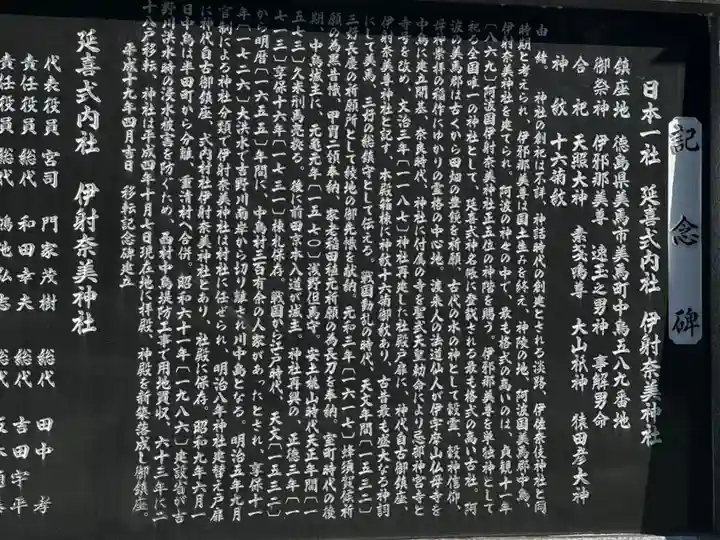 記念碑
日本一社 延喜式内社 伊射奈美神社
鎮座地 徳島県美馬市美馬町中鳥五八九番地
御祭神 伊邪那美尊 速玉之男神 事解男命
合祀 天照大神 素戔嗚尊 大山祇神 猿田彦大神
神紋 十六菊紋
由緒 神社の創祀は不詳、神話時代の創建とされる淡路 伊佐奈伎神社と同
時期と考えられ、伊邪那美尊は国土生みを終え、神陵の地、阿波国美馬郡中鳥、
伊射奈美神社を建てられ。阿波の神々の中で、最も格式の高いのは、貞観十一年
〔八六九〕阿波国伊射奈美神社正五位の神階を賜う。伊邪那美尊を単独神として
祀る全国唯一の神社として、延喜式神名帳に登載される最も格式の高い古社。阿
波の美馬郡は古くから田畑の豊饒を祈願、古代の水の神として穀霊、穀神信仰、
母神崇拝の稲作にゆかりの霊格の中心地。渡来人の法道仙人が伊宇摩山仏母寺を
中鳥に建立開基、奈良時代、神社に付属の寺を聖武天皇勅命により忌部神宮寺と
寺号を改め、文治三年〔一一八七〕神社再建した社殿戸扉に、神代自古御鎮座
伊射奈美尊神社と記す 本殿箱棟に神紋十六菊御紋あり、古昔最も盛大なる神詞
にして美馬、三好の総鎮守として伝える。戦国動乱の時代、天文年間〔一五三二〕
三好長慶の祈願所として綾地の御先帳一献納。元和三年〔一六一七〕蜂須賀保祈
願の為黒昔帳、甲冑二領奉納、家老稲田稙元祈願の為長刀を奉納。室町時代の後
期、中鳥城主に、元亀元年〔一五七〇〕浅野但馬守。安土桃山時代天正年間〔一
五七三〕久米刑馬亮義弘。後に前田京本入道が城主。神社再興の、正徳三年〔一
七一三〕享保十六年〔一七三一〕棟札保存。戦国から江戸時代、天文〔一五三二〕
から明暦〔一六五五〕年間に、中鳥村三百有余の人家があったとされ、享保十一
年〔一七二六〕大洪水で吉野川南岸から切り離され川中島となる。明治五年九月
官制により神社分類で伊射奈美神社は村社に任ぜられ、明治八年神社建替え戸扉
に神代自古御鎮座、式内村社伊射奈美神社とあり、社殿に保存。昭和九年六月一
日中鳥は半田町から分離、重清村へ合併。昭和六十一年〔一九八六〕建設省が吉
野川洪水時の浸水被害を防ぐため、西村中鳥堤防工事で用地買収、六十三年に二
十八戸移転、神社は平成四年十月七日現在地に拝殿、神殿を新築落成し御鎮座。
平成十九年四月吉日 移転記念碑建立
延喜式内社 伊射奈美神社
代表役員 宮司 門家茂樹 総代 田中 孝
責任役員 総代 和田幸夫 総代 吉田宇平
責任役員 総代 鴻池弘志 総代